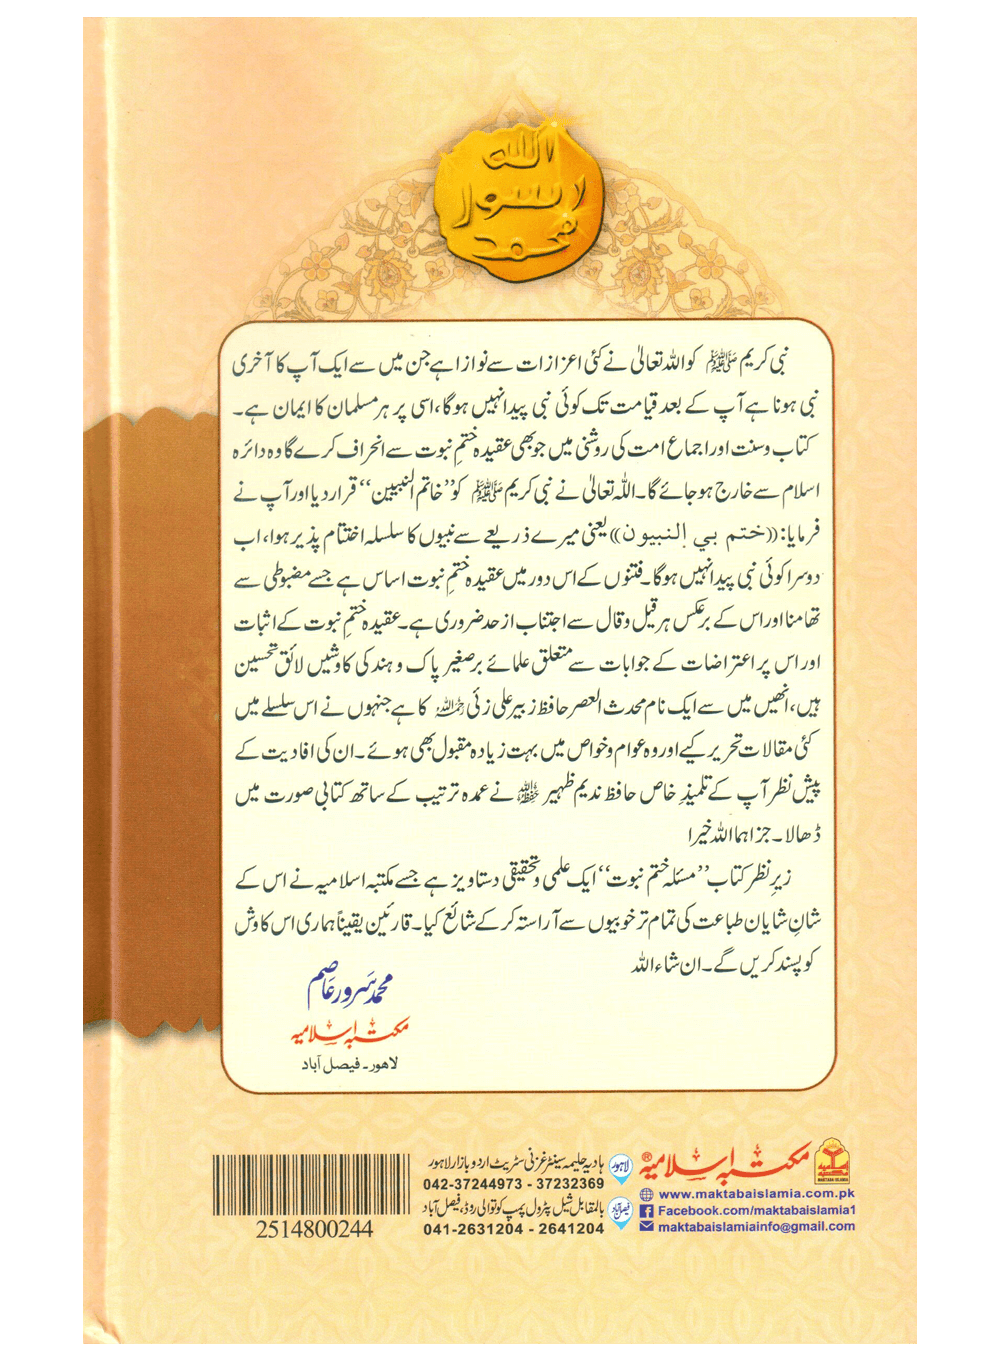 الله
رسول
محمد
نبی کریم ﷺ کو اللہ تعالیٰ نے کئی اعزازات سے نوازا ہے جن میں سے ایک آپ کا آخری
نبی ہونا ہے آپ کے بعد قیامت تک کوئی نبی پیدا نہیں ہوگا، اسی پر ہر مسلمان کا ایمان ہے۔
کتاب و سنت اور اجماع امت کی روشنی میں جو بھی عقیدہ ختمِ نبوت سے انحراف کرے گا وہ دائرہ
اسلام سے خارج ہو جائے گا۔ اللہ تعالیٰ نے نبی کریم ﷺ کو ”خاتم النبیین“ قرار دیا اور آپ نے
فرمایا: ((ختم بي النبيون)) یعنی میرے ذریعے سے نبیوں کا سلسلہ اختتام پذیر ہوا، اب
دوسرا کوئی نبی پیدا نہیں ہوگا۔ فتنوں کے اس دور میں عقیدہ ختمِ نبوت اساس ہے جسے مضبوطی سے
تھامنا اور اس کے برعکس ہر قیل و قال سے اجتناب از حد ضروری ہے۔ عقیدہ ختمِ نبوت کے اثبات
اور اس پر اعتراضات کے جوابات سے متعلق علمائے برصغیر پاک و ہند کی کاوشیں لائق تحسین
ہیں، انھیں میں سے ایک نام محدث العصر حافظ زبیر علی زئی رحمہ اللہ کا ہے جنہوں نے اس سلسلے میں
کئی مقالات تحریر کیے اور وہ عوام و خواص میں بہت زیادہ مقبول بھی ہوئے۔ ان کی افادیت کے
پیش نظر آپ کے تلمیذِ خاص حافظ ندیم ظہیر حفظہ اللہ نے عمدہ ترتیب کے ساتھ کتابی صورت میں
ڈھالا۔ جزاهما الله خيرا
زیرِ نظر کتاب ”مسئلہ ختم نبوت“ ایک علمی و تحقیقی دستاویز ہے جسے مکتبہ اسلامیہ نے اس کے
شانِ شایان طباعت کی تمام تر خوبیوں سے آراستہ کر کے شائع کیا۔ قارئین یقیناً ہماری اس کاوش
کو پسند کریں گے۔ ان شاء اللہ
محمد سرور عاصم
مکتبہ اسلامیہ
لاہور۔ فیصل آباد
مکتبہ اسلامیہ®
MAKTABA ISLAMIA
www.maktabaislamia.com.pk
Facebook.com/maktabaislamia1
maktabaislamiainfo@gmail.com
لاہور ہادیہ حلیمہ سینٹر غزنی سٹریٹ اردو بازار لاہور
042-37244973 - 37232369
فیصل آباد بالمقابل شیل پٹرول پمپ کوتوالی روڈ، فیصل آباد
041-2631204 - 2641204
2514800244